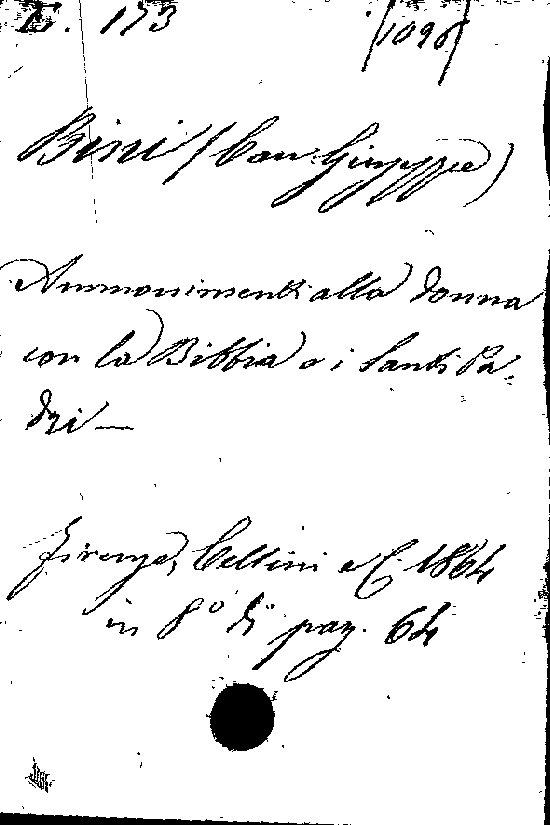 173 (1096)
Bini (Can Giuseppe)
Ammonimenti alla donna
con la Bibbia e i Santi Pa-
dri —
Firenze, Cellini e C. 1864
in 8° di pag. 64